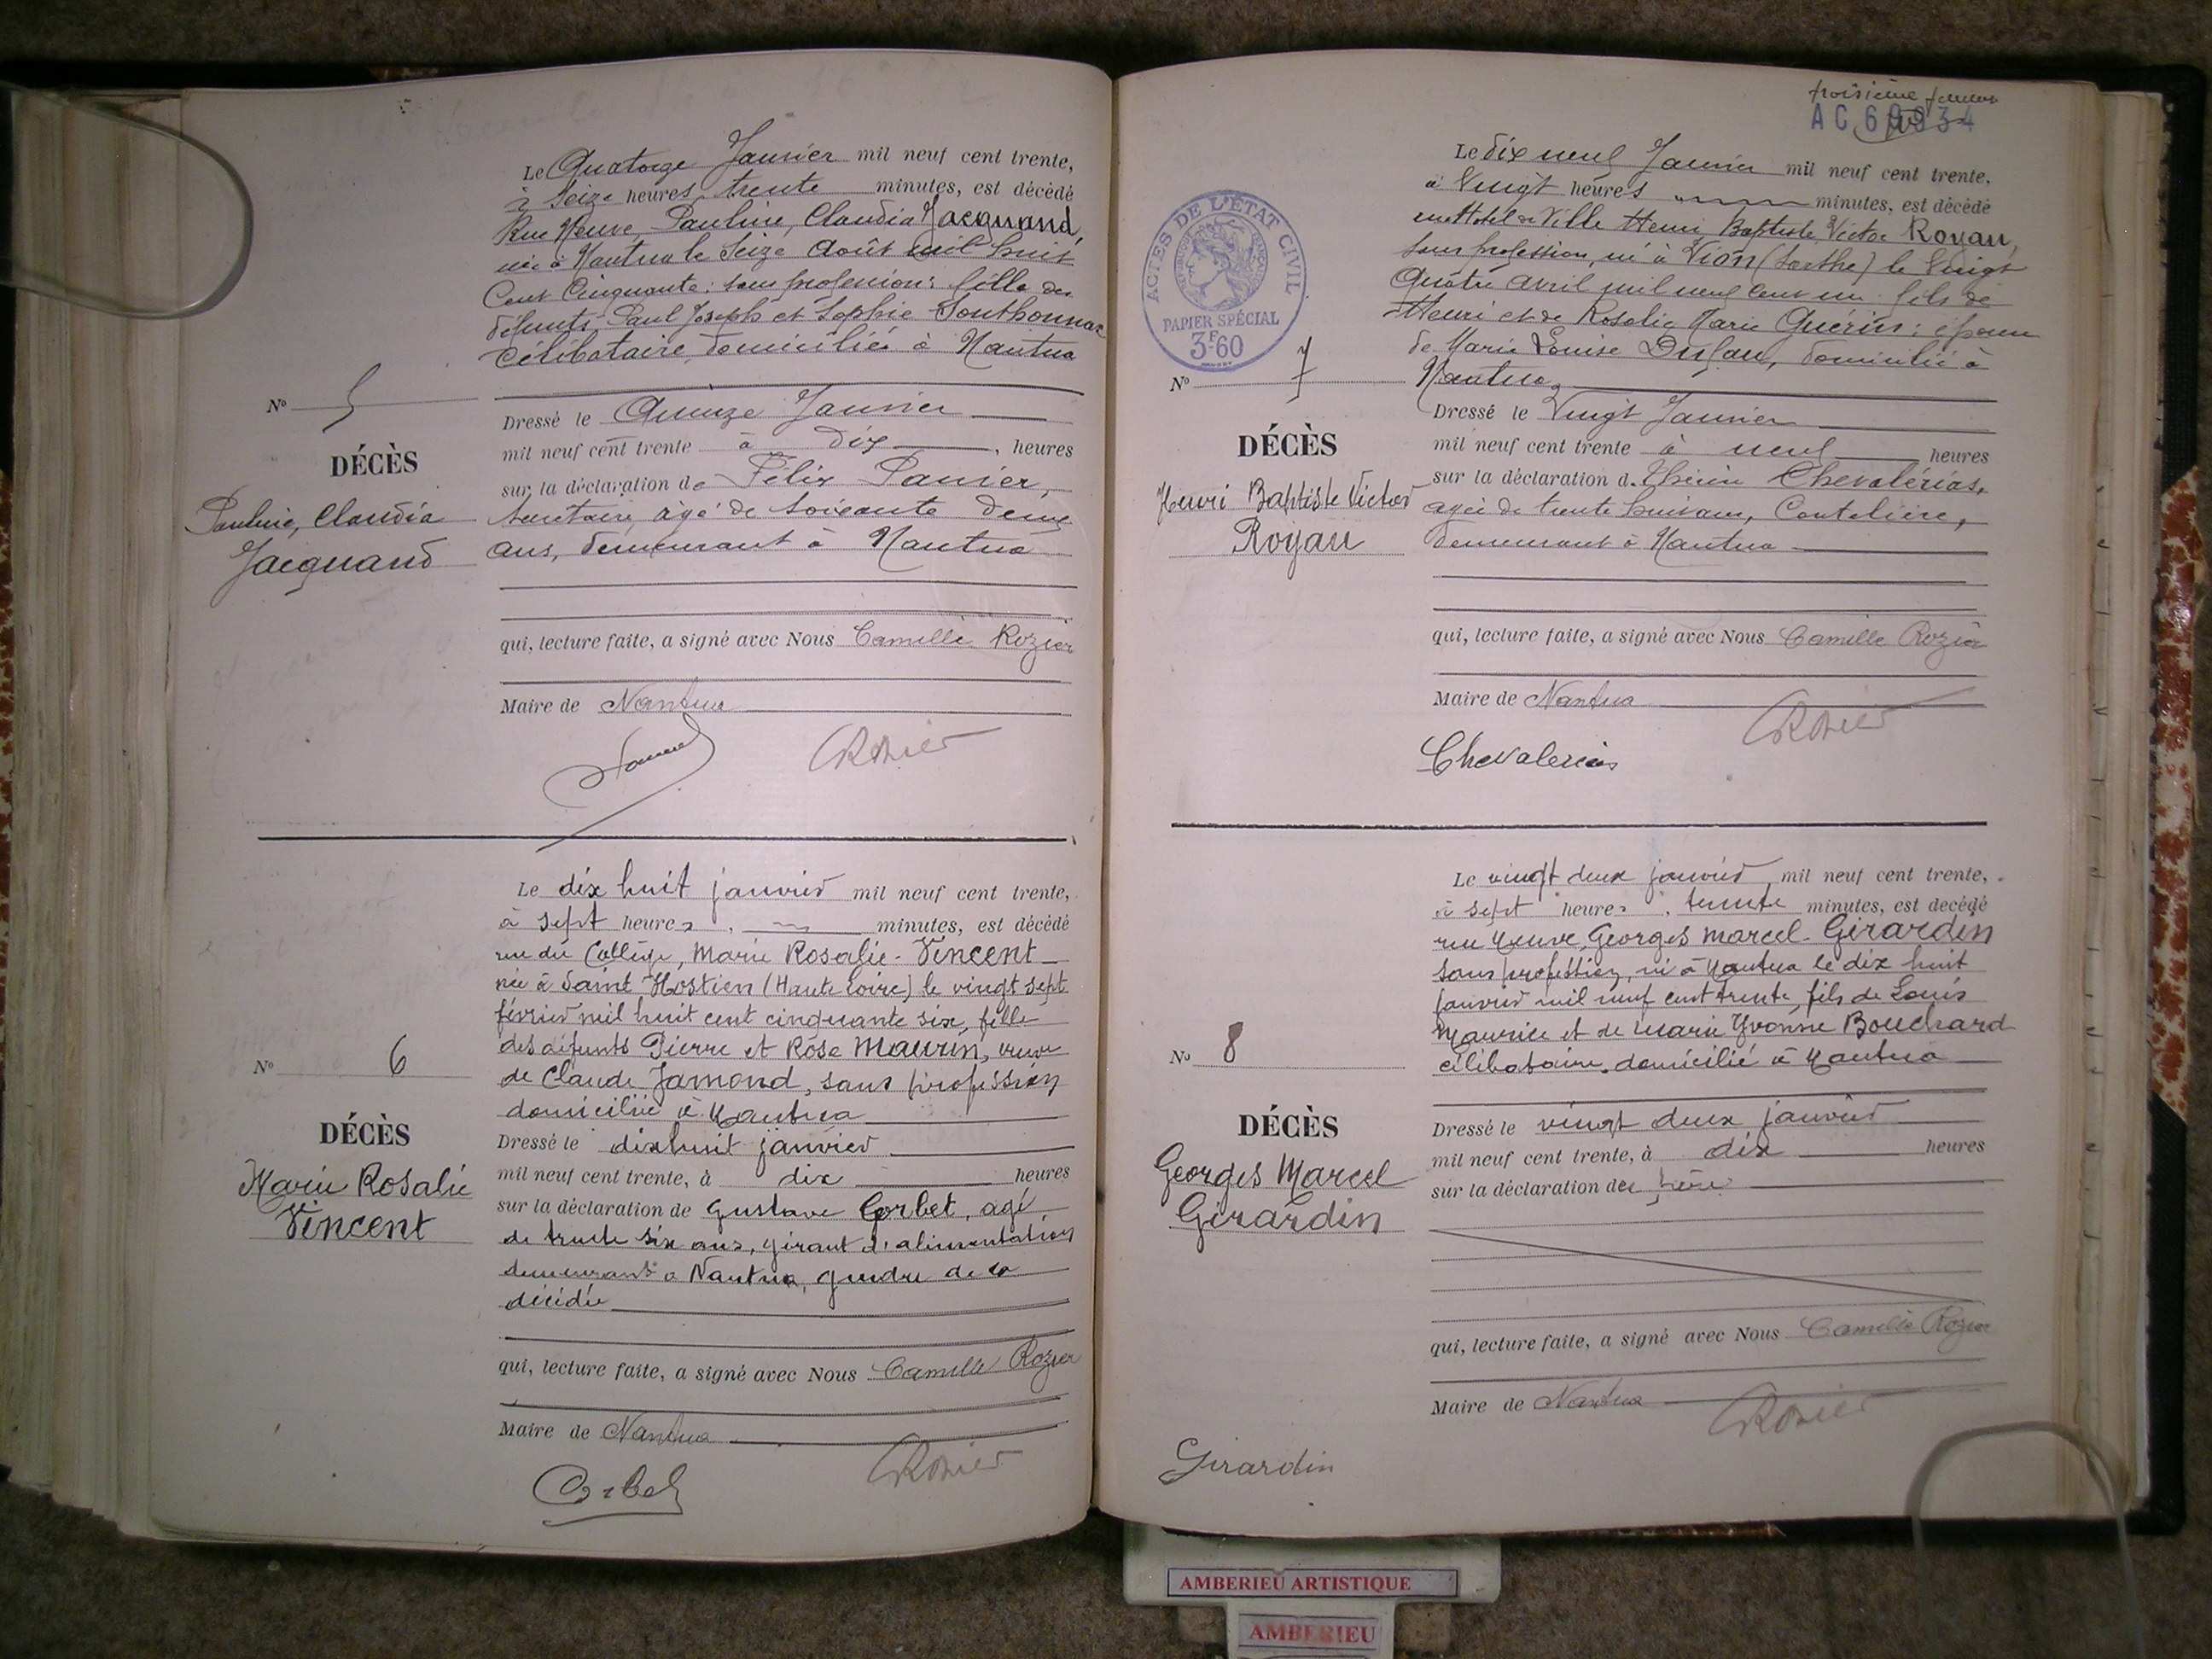 Le Quatorze Janvier mil neuf cent trente,
à Seize heures trente minutes, est décédé
Rue Neuve, Pauline, Claudia Jacquand,
née à Nantua le Seize Août mil huit
Cent Cinquante; sans profession; fille des
défunts Paul Joseph et Sophie Sonthonnax
Célibataire, domiciliée à Nantua
N° 5
DÉCÈS
Pauline, Claudia
Jacquand
Dressé le Quinze Janvier
mil neuf cent trente à dix, heures
sur la déclaration de Félix Panier,
Secrétaire, âgé de soixante deux
ans, demeurant à Nantua
qui, lecture faite, a signé avec Nous Camille Rozier
Maire de Nantua
Rozier
Le dix huit janvier mil neuf cent trente,
à sept heures, minutes, est décédé
rue du Collège, Marie Rosalie Vincent
née à Saint Hostien (Haute Loire) le vingt sept
février mil huit cent cinquante six, fille
des défunts Pierre et Rose Maurin, veuve
de Claude Jamond, sans profession
domiciliée à Nantua
N° 6
DÉCÈS
Marie Rosalie
Vincent
Dressé le dix huit janvier
mil neuf cent trente, à dix heures
sur la déclaration de Gustave Corbet, agé
de trente six ans, gérant d'alimentation
demeurant à Nantua, gendre de la
décédée
qui, lecture faite, a signé avec Nous Camille Rozier
Maire de Nantua
Corbet
Rozier
troisième
AC 69934
Le dix neuf Janvier mil neuf cent trente,
à Vingt heures minutes, est décédé
rue Hotel de Ville Henri Baptiste Victor Royau,
sans profession, né à Vion (Sarthe) le Vingt
Quatre avril mil neuf cent un fils de
Henri et de Rosalie Marie Guérin; époux
de Marie Louise Dufau, domicilié à
Nantua
ACTES DE L'ÉTAT CIVIL
PAPIER SPÉCIAL
3F60
N° 7
DÉCÈS
Henri Baptiste Victor
Royau
Dressé le Vingt Janvier
mil neuf cent trente à neuf heures
sur la déclaration d. Chevalérias,
agée de trente huit ans, Coutelière,
demeurant à Nantua
qui, lecture faite, a signé avec Nous Camille Rozier
Maire de Nantua
Rozier
Chevalerias
Le vingt deux janvier mil neuf cent trente,
à sept heures, trente minutes, est décédé
rue Neuve, Georges Marcel Girardin
sans profession, né à Nantua le dix huit
janvier mil neuf cent trente, fils de Louis
Maurice et de Marie Yvonne Bouchard
célibataire, domicilié à Nantua
N° 8
DÉCÈS
Georges Marcel
Girardin
Dressé le vingt deux janvier
mil neuf cent trente, à dix heures
sur la déclaration du père
qui, lecture faite, a signé avec Nous Camille Rozier
Maire de Nantua
Rozier
Girardin
AMBERIEU ARTISTIQUE
AMBERIEU